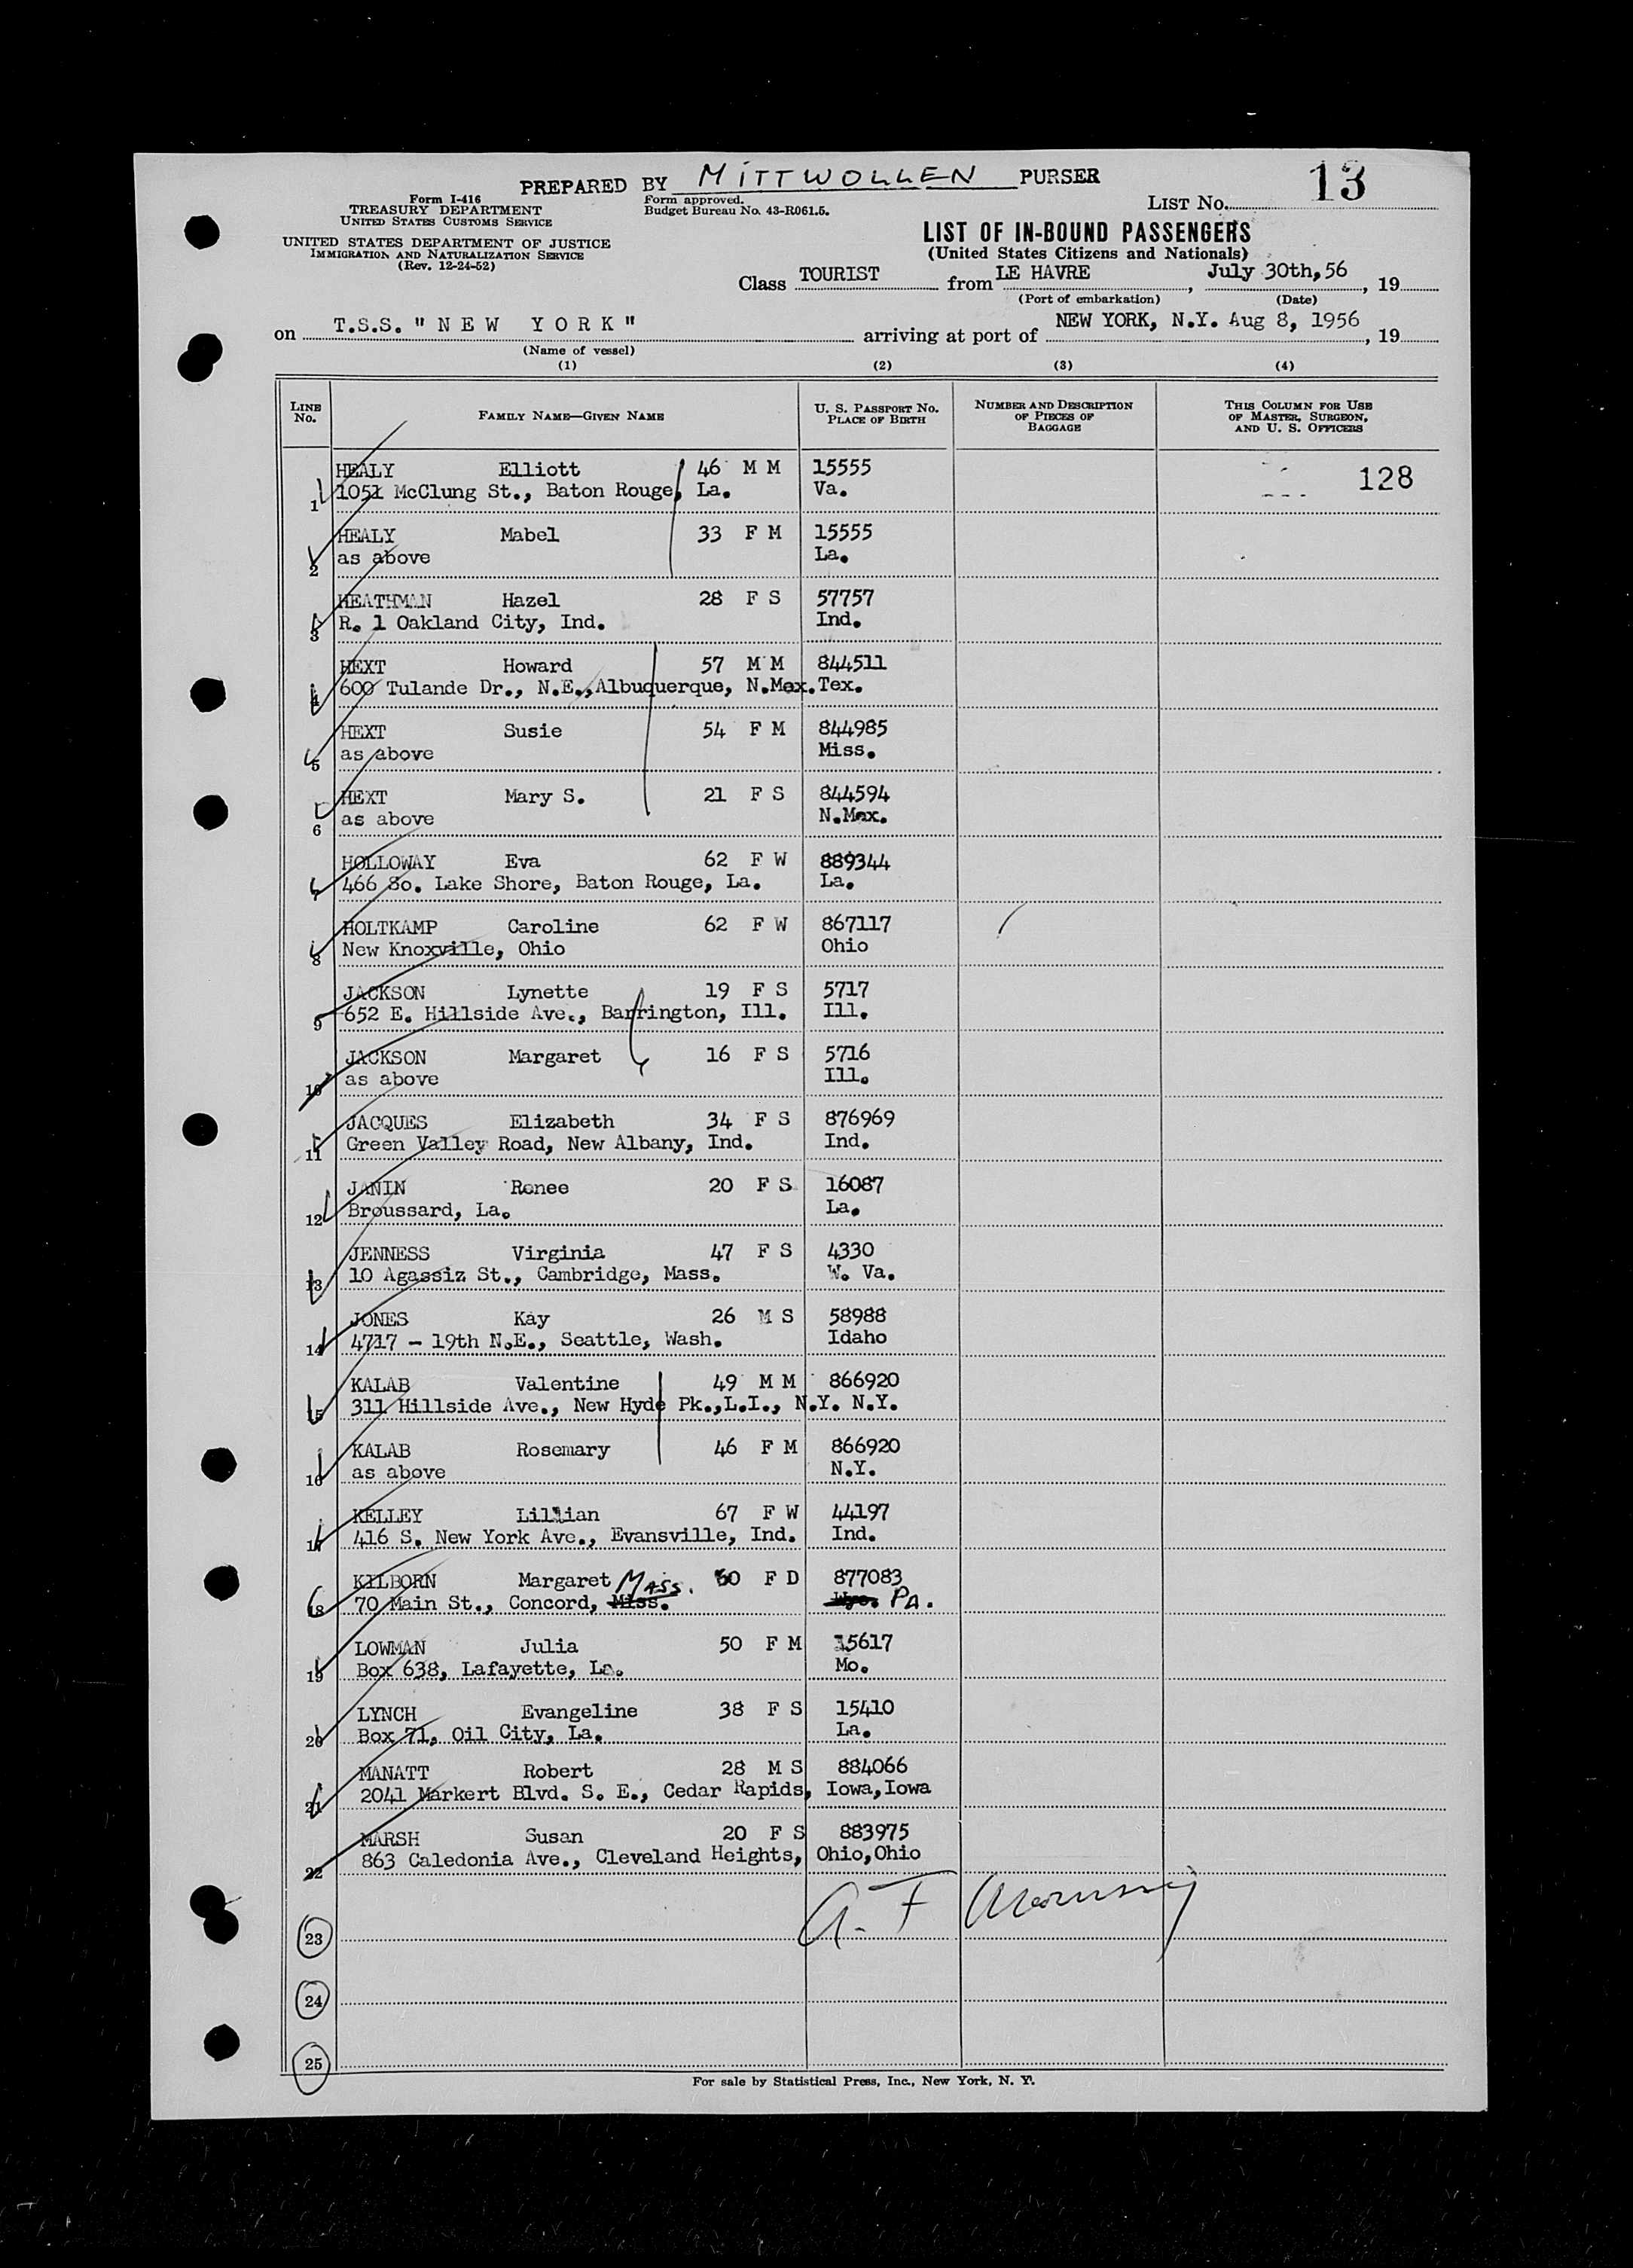 PREPARED BY MITTWOLLEN PURSER
13
Form I-416
TREASURY DEPARTMENT
UNITED STATES CUSTOMS SERVICE
Form approved.
Budget Bureau No. 43-R061.5.
LIST NO.
UNITED STATES DEPARTMENT OF JUSTICE
IMMIGRATION AND NATURALIZATION SERVICE
(Rev. 12-24-52)
LIST OF IN-BOUND PASSENGERS
(United States Citizens and Nationals)
Class TOURIST from LE HAVRE, July 30th,56, 19
(Port of embarkation) (Date)
on T.S.S. "NEW YORK" arriving at port of NEW YORK, N.Y. Aug 8, 1956, 19
(Name of vessel)
(1) (2) (3) (4)
LINE NO. FAMILY NAME—GIVEN NAME U. S. PASSPORT NO. PLACE OF BIRTH NUMBER AND DESCRIPTION OF PIECES OF BAGGAGE THIS COLUMN FOR USE OF MASTER, SURGEON, AND U. S. OFFICERS
HEALY Elliott 46 M M 15555 128
1 1051 McClung St., Baton Rouge, La. Va.
HEALY Mabel 33 F M 15555
2 as above La.
HEATHMAN Hazel 28 F S 57757
3 R. 1 Oakland City, Ind. Ind.
HEXT Howard 57 M M 844511
4 600 Tulande Dr., N.E.,Albuquerque, N.Mex.Tex.
HEXT Susie 54 F M 844985
5 as above Miss.
HEXT Mary S. 21 F S 844594
6 as above N.Mex.
HOLLOWAY Eva 62 F W 889344
7 466 So. Lake Shore, Baton Rouge, La. La.
HOLTKAMP Caroline 62 F W 867117
8 New Knoxville, Ohio Ohio
JACKSON Lynette 19 F S 5717
9 652 E. Hillside Ave., Barrington, Ill. Ill.
JACKSON Margaret 16 F S 5716
10 as above Ill.
JACQUES Elizabeth 34 F S 876969
11 Green Valley Road, New Albany, Ind. Ind.
JANIN Renee 20 F S 16087
12 Broussard, La. La.
JENNESS Virginia 47 F S 4330
13 10 Agassiz St., Cambridge, Mass. W. Va.
JONES Kay 26 M S 58988
14 4717 - 19th N.E., Seattle, Wash. Idaho
KALAB Valentine 49 M M 866920
15 311 Hillside Ave., New Hyde Pk.,L.I., N.Y. N.Y.
KALAB Rosemary 46 F M 866920
16 as above N.Y.
KELLEY Lillian 67 F W 44197
17 416 S. New York Ave., Evansville, Ind. Ind.
KILBORN Margaret MASS. 60 F D 877083
18 70 Main St., Concord, Miss. Wyo. PA.
LOWMAN Julia 50 F M 15617
19 Box 638, Lafayette, La. Mo.
LYNCH Evangeline 38 F S 15410
20 Box 71, Oil City, La. La.
MANATT Robert 28 M S 884066
21 2041 Markert Blvd. S. E., Cedar Rapids, Iowa,Iowa
MARSH Susan 20 F S 883975
22 863 Caledonia Ave., Cleveland Heights, Ohio,Ohio
A. F
23
24
25
For sale by Statistical Press, Inc., New York, N. Y.